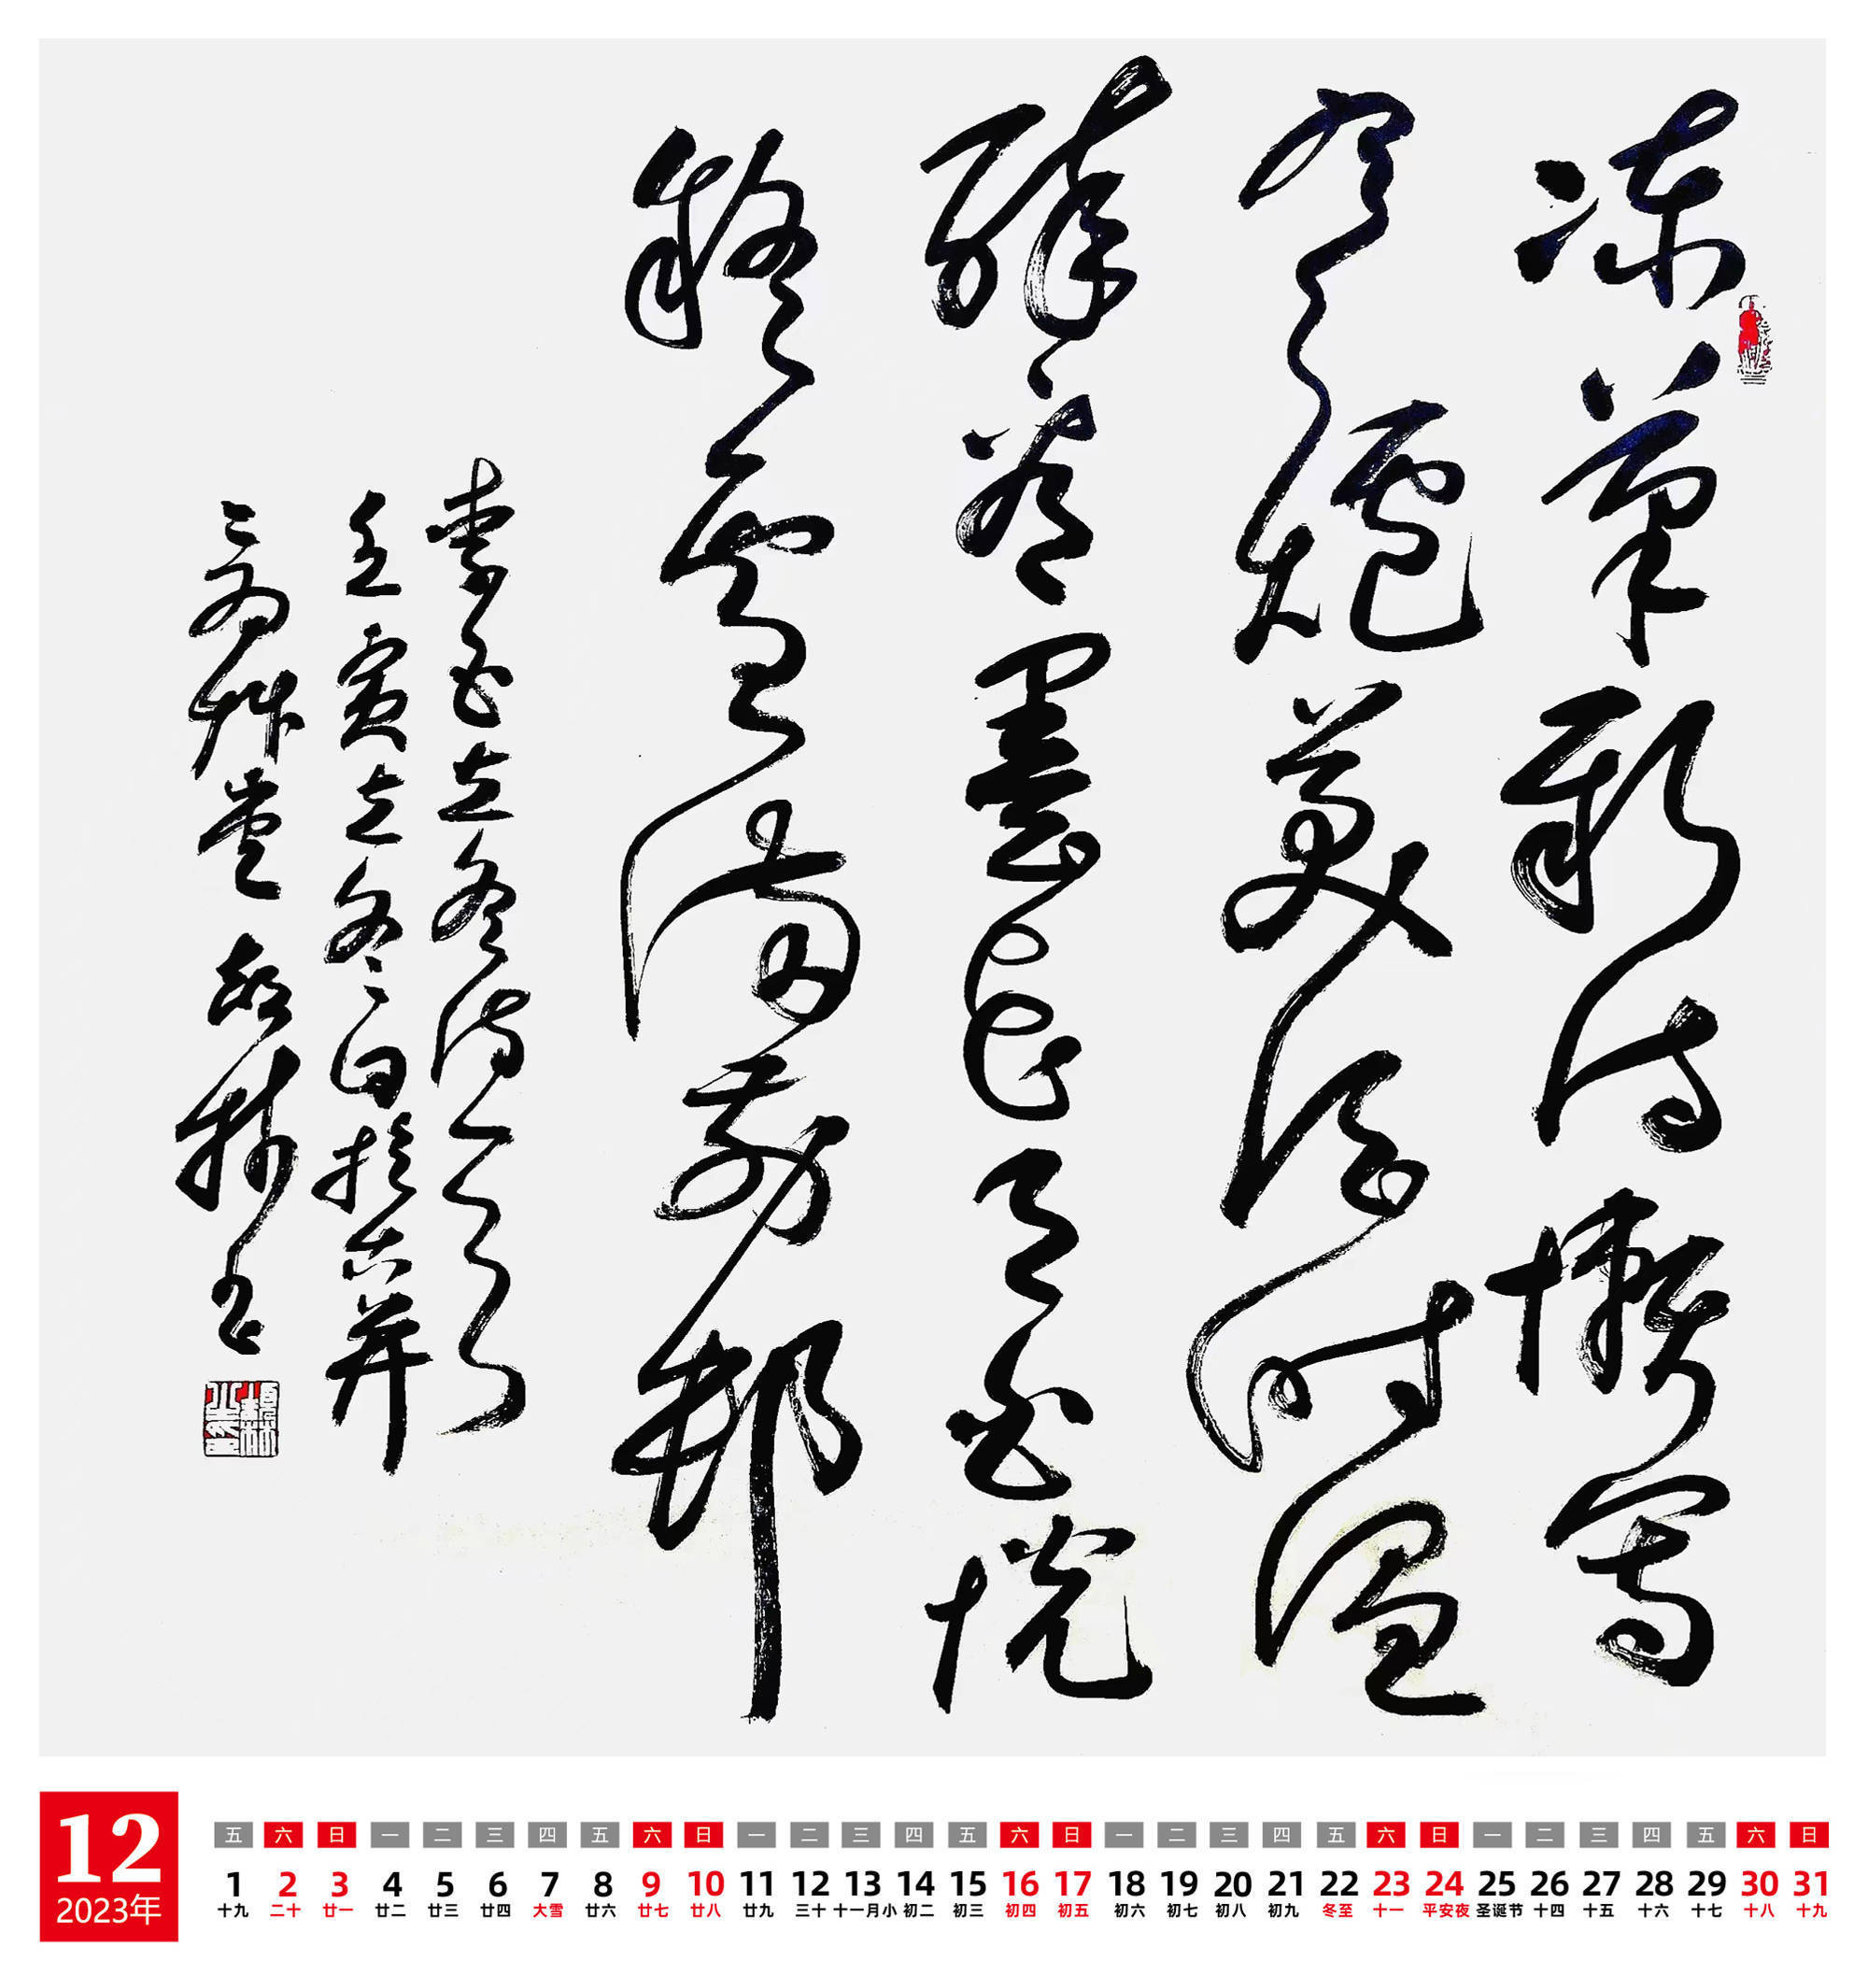 凍筆新詩懶寫
寒爐美酒時溫
醉看墨花月白恍
疑雪滿前邨
李白立冬詩一首
壬寅立冬
艸堂
12
2023年
五 六 日 一 二 三 四 五 六 日 一 二 三 四 五 六 日 一 二 三 四 五 六 日 一 二 三 四 五 六 日
1 2 3 4 5 6 7 8 9 10 11 12 13 14 15 16 17 18 19 20 21 22 23 24 25 26 27 28 29 30 31
十九 二十 廿一 廿二 廿三 廿四 大雪 廿六 廿七 廿八 廿九 三十 十一月小 初二 初三 初四 初五 初六 初七 初八 初九 冬至 十一 平安夜 圣诞节 十四 十五 十六 十七 十八 十九